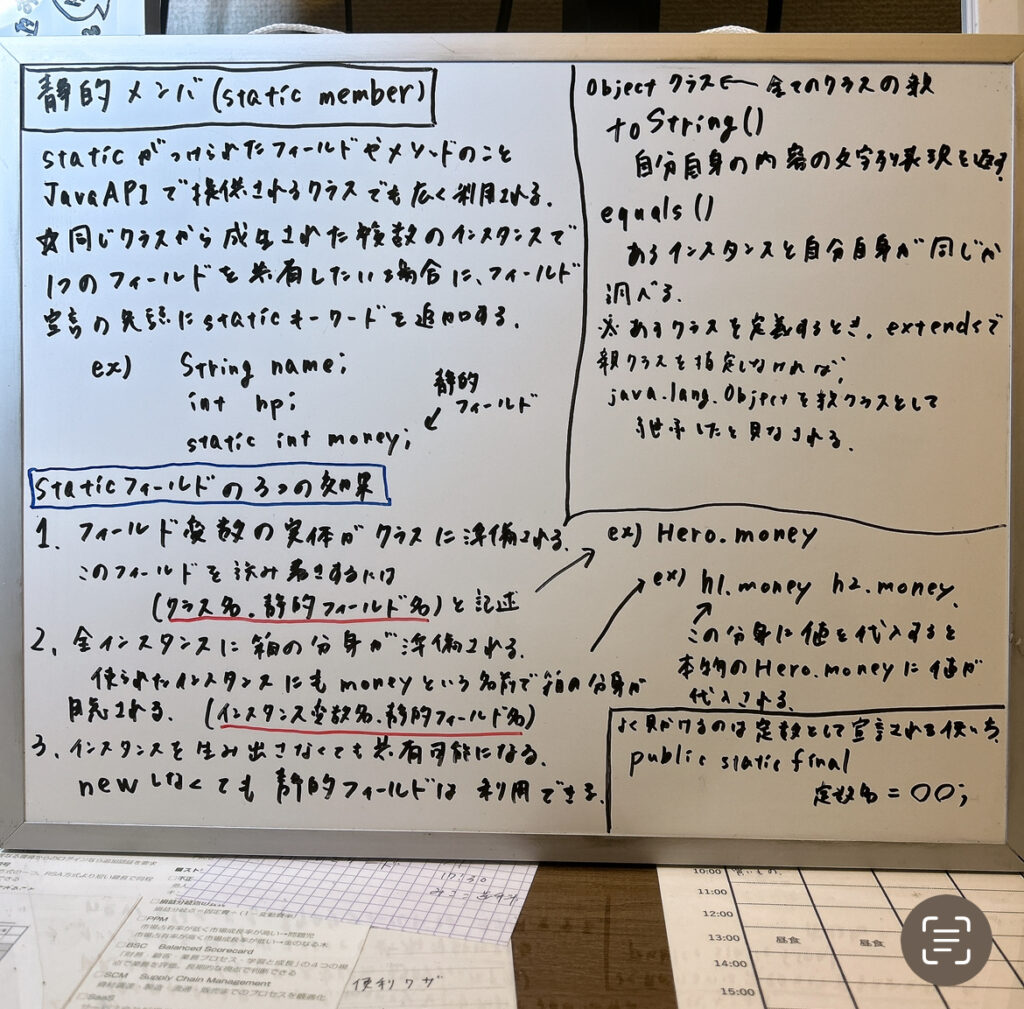 静的メンバ(static member)
staticがつけられたフィールドやメソッドのこと
JavaAPIで提供されるクラスでも広く利用される.
☆同じクラスから生成された複数のインスタンスで
1つのフィールドを共有したい場合に、フィールド
宣言の先頭にstaticキーワードを追加する.
ex) String name;
int hp;
static int money;
静的
フィールド
staticフィールドの3つの効果
1. フィールド変数の実体がクラスに準備される.
このフィールドを読み書きするには
(クラス名.静的フィールド名)と記述
2. 全インスタンスに箱の分身が準備される.
インスタンスにもmoneyという名前で箱の分身が
される. (インスタンス変数名.静的フィールド名)
3. インスタンスを生み出さなくても共有可能になる.
newしなくても静的フィールドは利用できる.
Objectクラス← 全てのクラスの親
toString()
自分自身の内容の文字列表現を返す.
equals()
あるインスタンスと自分自身が同じか
調べる.
※あるクラスを定義するとき. extendsで
親クラスを指定しなければ,
java.lang.Objectを親クラスとして
継承したと見なされる.
ex) Hero.money
ex) h1.money h2.money.
この分身に値を代入すると
本物のHero.moneyに値が
代入される.
よく見かけるのは定数として宣言される使い方.
public static final
定数名 = ○○;
PPM
市場占有率が高く市場成長率が高い→問題児
市場占有率が高く市場成長率が低い→金のなる木
BSC Balanced Scorecard
「財務・顧客・業務プロセス・学習と成長」の4つの視
点で業績を評価、長期的な視点で判断できる
SCM Supply Chain Management
資材調達・製造・流通・販売までのプロセスを最適化
SaaS
便利ワザ
17:30
10:00
11:00
12:00
13:00 昼食 昼食
14:00
15:00